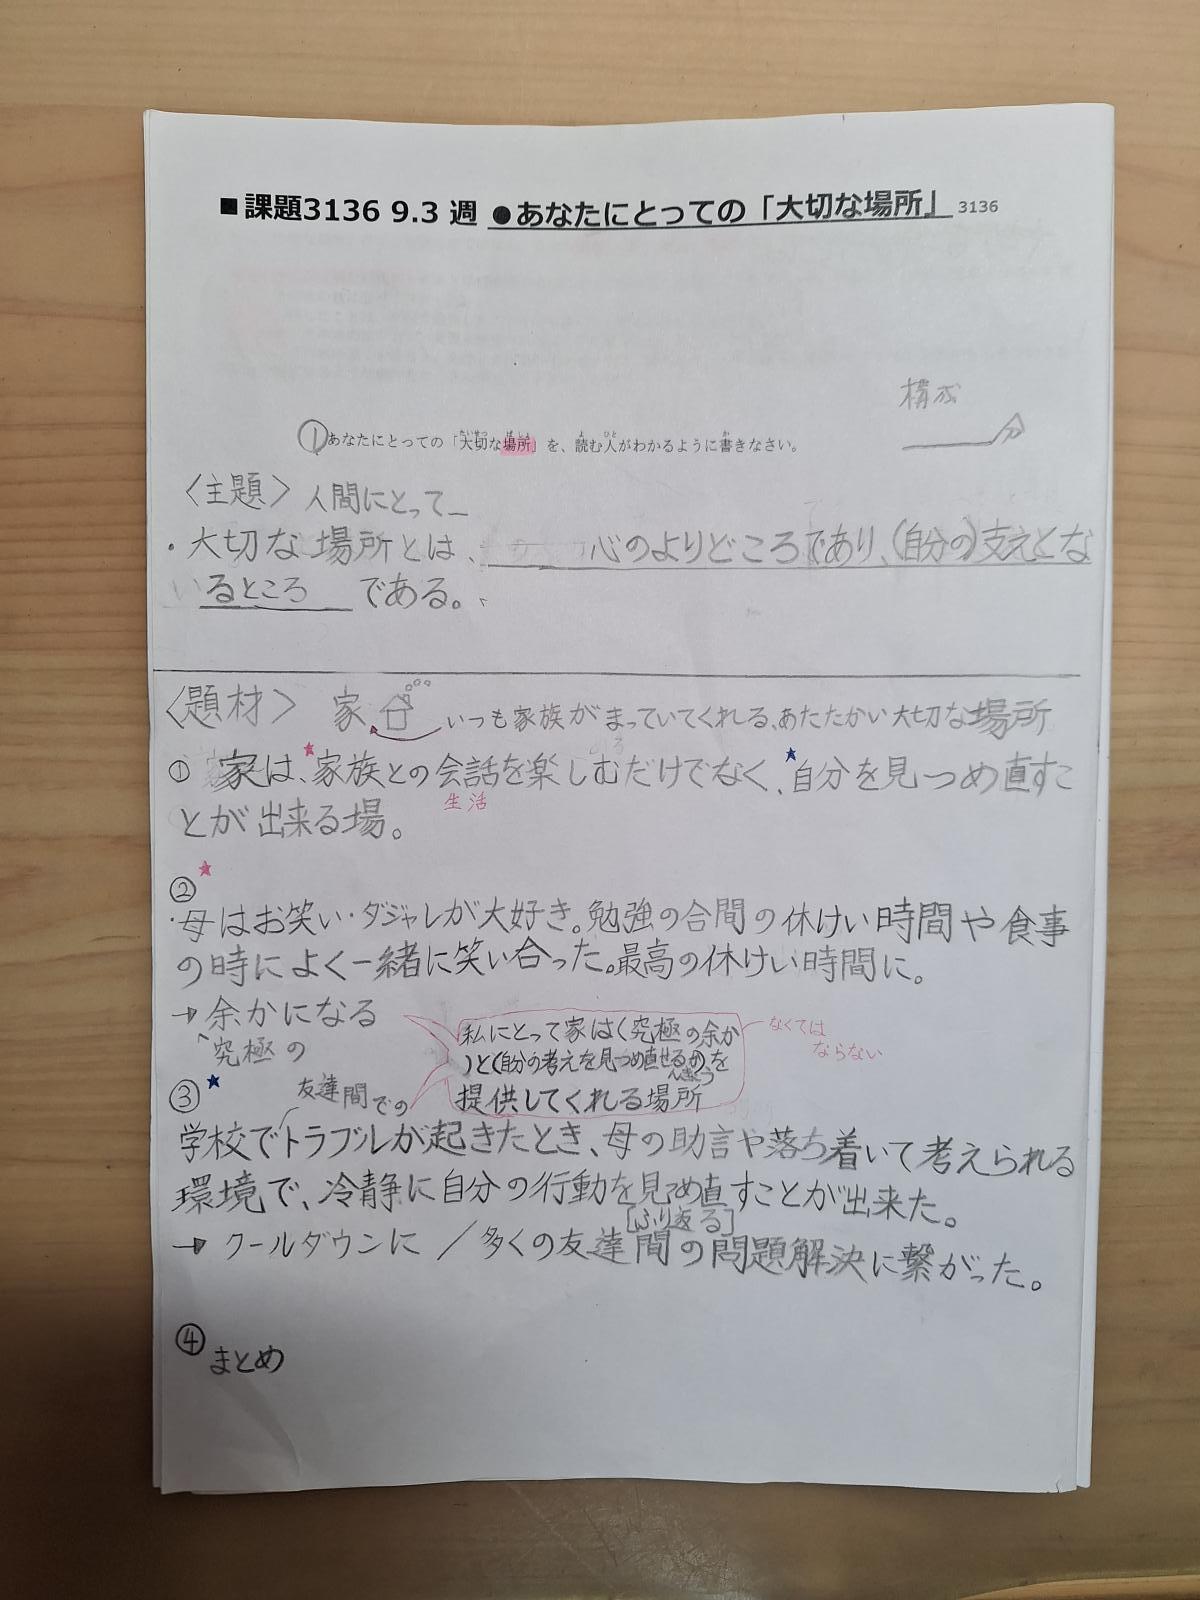 ■課題3136 9.3 週 ●あなたにとっての「大切な場所」 3136
構成
分
①あなたにとっての「大切な場所」を、読む人がわかるように書きなさい。
〈主題〉人間にとって
・大切な場所とは、心のよりどころであり、(自分の)支えとな
るところ である。
〈題材〉 家 いつも家族がまっていてくれる、あたたかい大切な場所
① 家は、★家族との会話を楽しむだけでなく、★自分を見つめ直すこ
生活
とが出来る場。
②★
・母はお笑い・ダジャレが大好き。勉強の合間の休けい時間や食事
の時によく一緒に笑い合った。最高の休けい時間に。
→余かになる
究極の
私にとって家は(究極の余か
)と(自分の考えを見つめ直せるかんきょう)を
提供してくれる場所
なくては
ならない
③★
友達間での
学校でトラブルが起きたとき、母の助言や落ち着いて考えられる
環境で、冷静に自分の行動を見つめ直すことが出来た。
[ふり返る]
→クールダウンに／多くの友達間の問題解決に繋がった。
④
まとめ